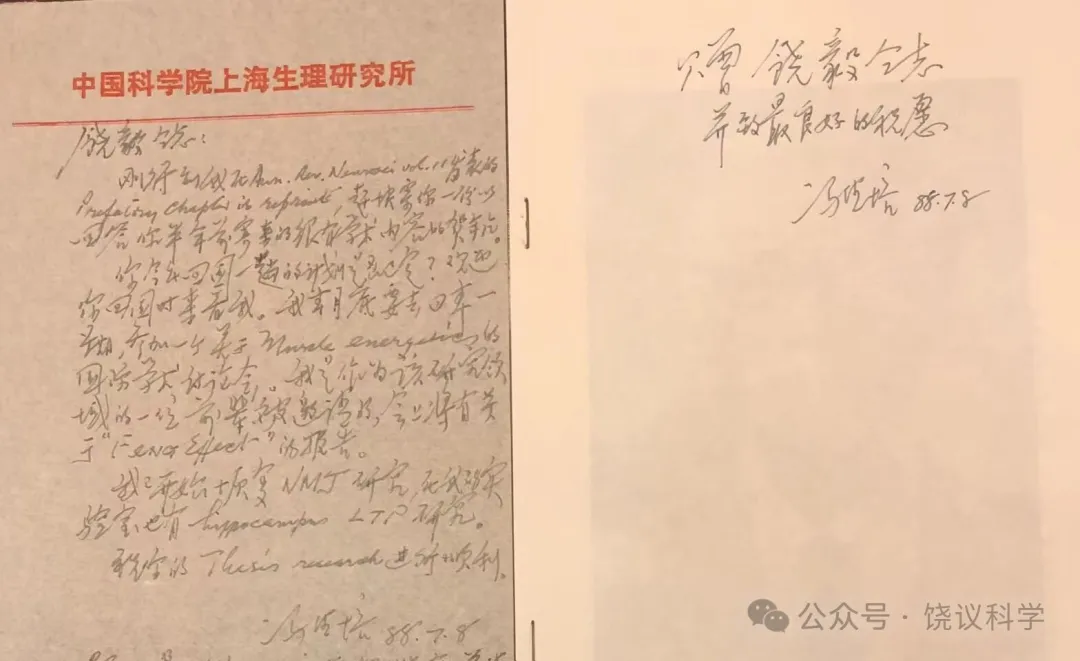 中国科学院上海生理研究所
饶毅同志：
刚得到我在Ann. Rev. Neurosci vol. 11发表的
Prefatory Chapter的reprints, 赶快寄你一份以
回答你半年前寄来的很有学术内容的贺年片。
你今年回国一趟的计划是否已定？欢迎
你回国时来看我。我本月底要去日本一
星期，参加一个关于Muscle energetics的
国际学术讨论会。我是作为该研究领
域的一位前辈被邀请的，会上将有关
于“Feng Effect”的报告。
我已开始恢复NMJ研究，在我的实
验室也有hippocampus LTP研究。
祝你的Thesis research进行顺利。
冯德培 88.7.8
赠饶毅同志
并致最良好的祝愿
冯德培 88.7.8
公众号·饶议科学